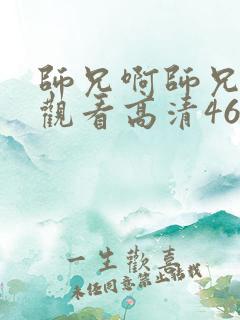 師兄啊師兄
觀看高清46
一生歡喜
未經同意禁止搬我